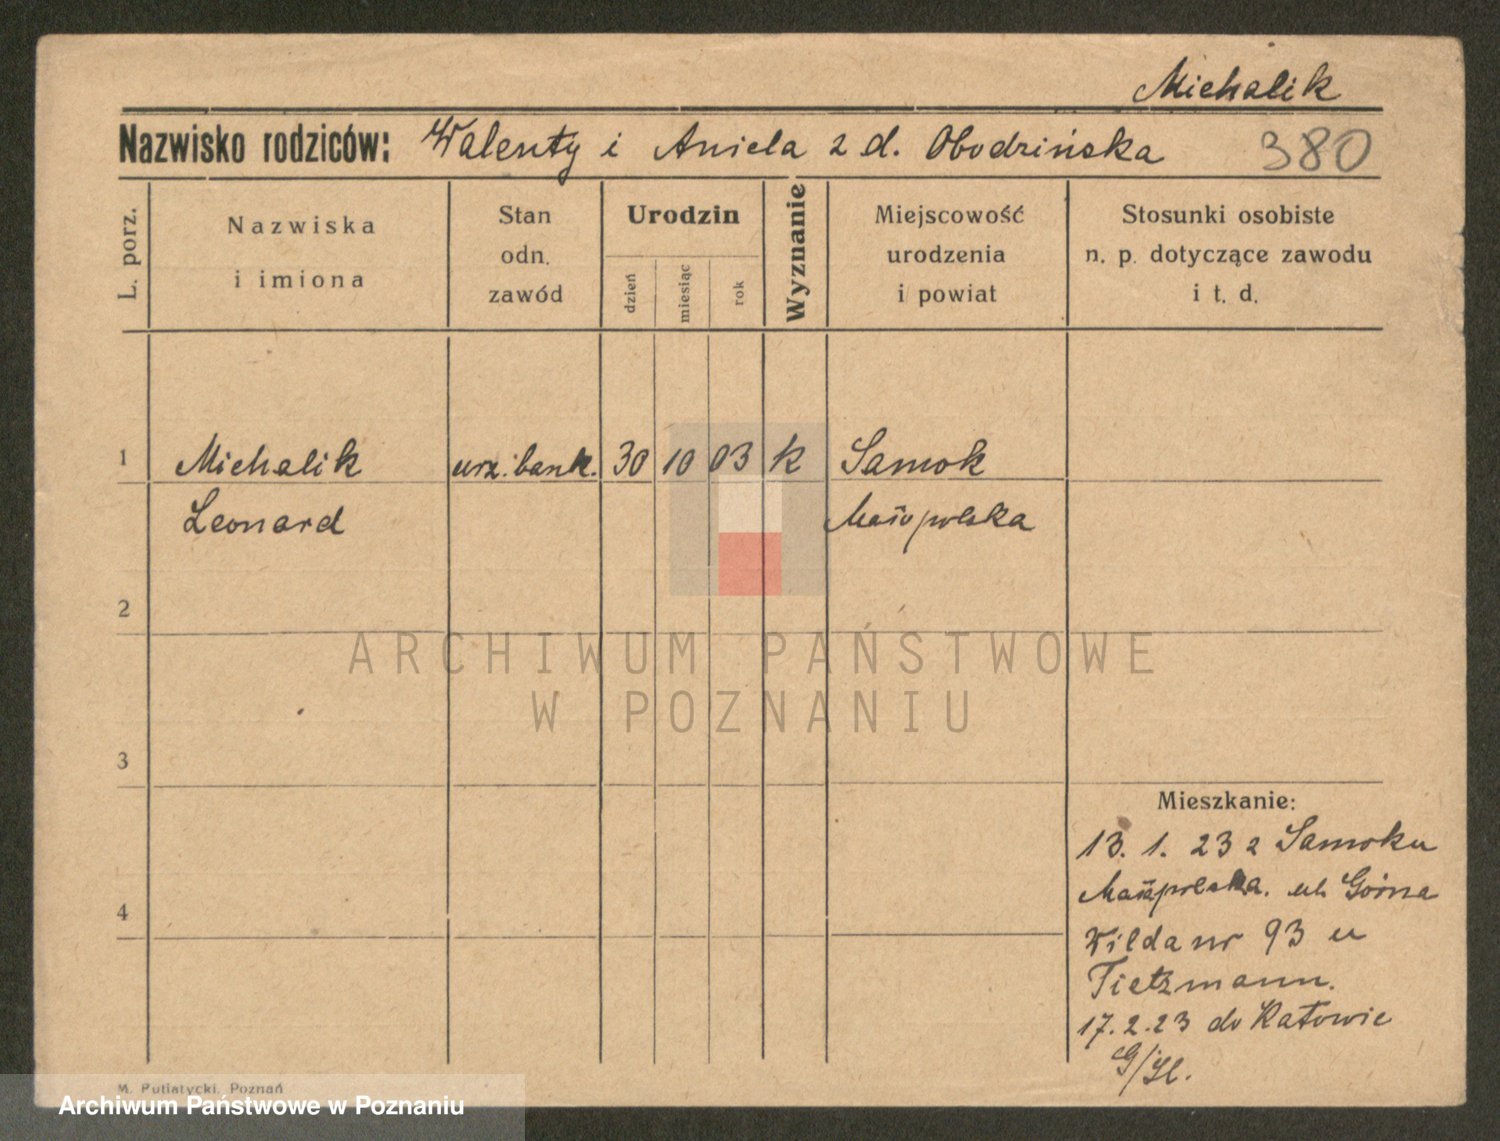 Michalik
Nazwisko rodziców: Walenty i Aniela z d. Obodzińska 380
L. porz.
Nazwiska
i imiona
Stan
odn.
zawód
Urodzin
dzień
miesiąc
rok
Wyznanie
Miejscowość
urodzenia
i powiat
Stosunki osobiste
n. p. dotyczące zawodu
i t. d.
1 Michalik urz. bank. 30 10 03 k Samok
Leonard Małopolska
2
ARCHIWUM PAŃSTWOWE
W POZNANIU
3
Mieszkanie:
13. 1. 23 z Samoku
Małopolska. ul. Górna
4
Wilda nr 93 u
Tietzmann.
17.2.23 do Katowic
G/Śl.
M. Putiatycki, Poznań
Archiwum Państwowe w Poznaniu